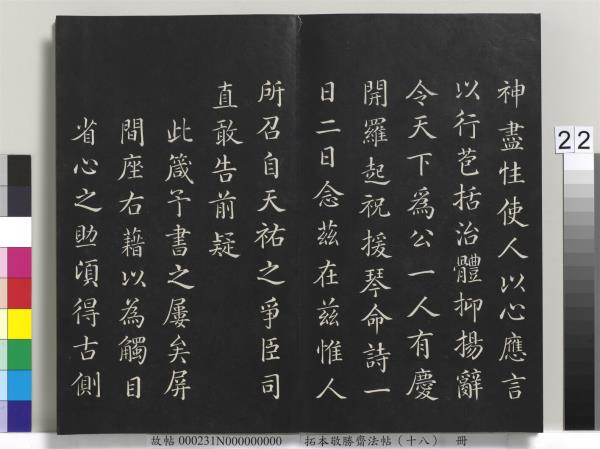 神盡性使人以心應言
以行苞括治體抑揚辭
令天下為公一人有慶
開羅起祝援琴命詩一
日二日念茲在茲惟人
所召自天祐之爭臣司
直敢告前疑
此箴予書之屢矣屏
間座右藉以為觸目
省心之助頃得古側
22
故帖 000231N000000000 拓本敬勝齋法帖(十八) 冊